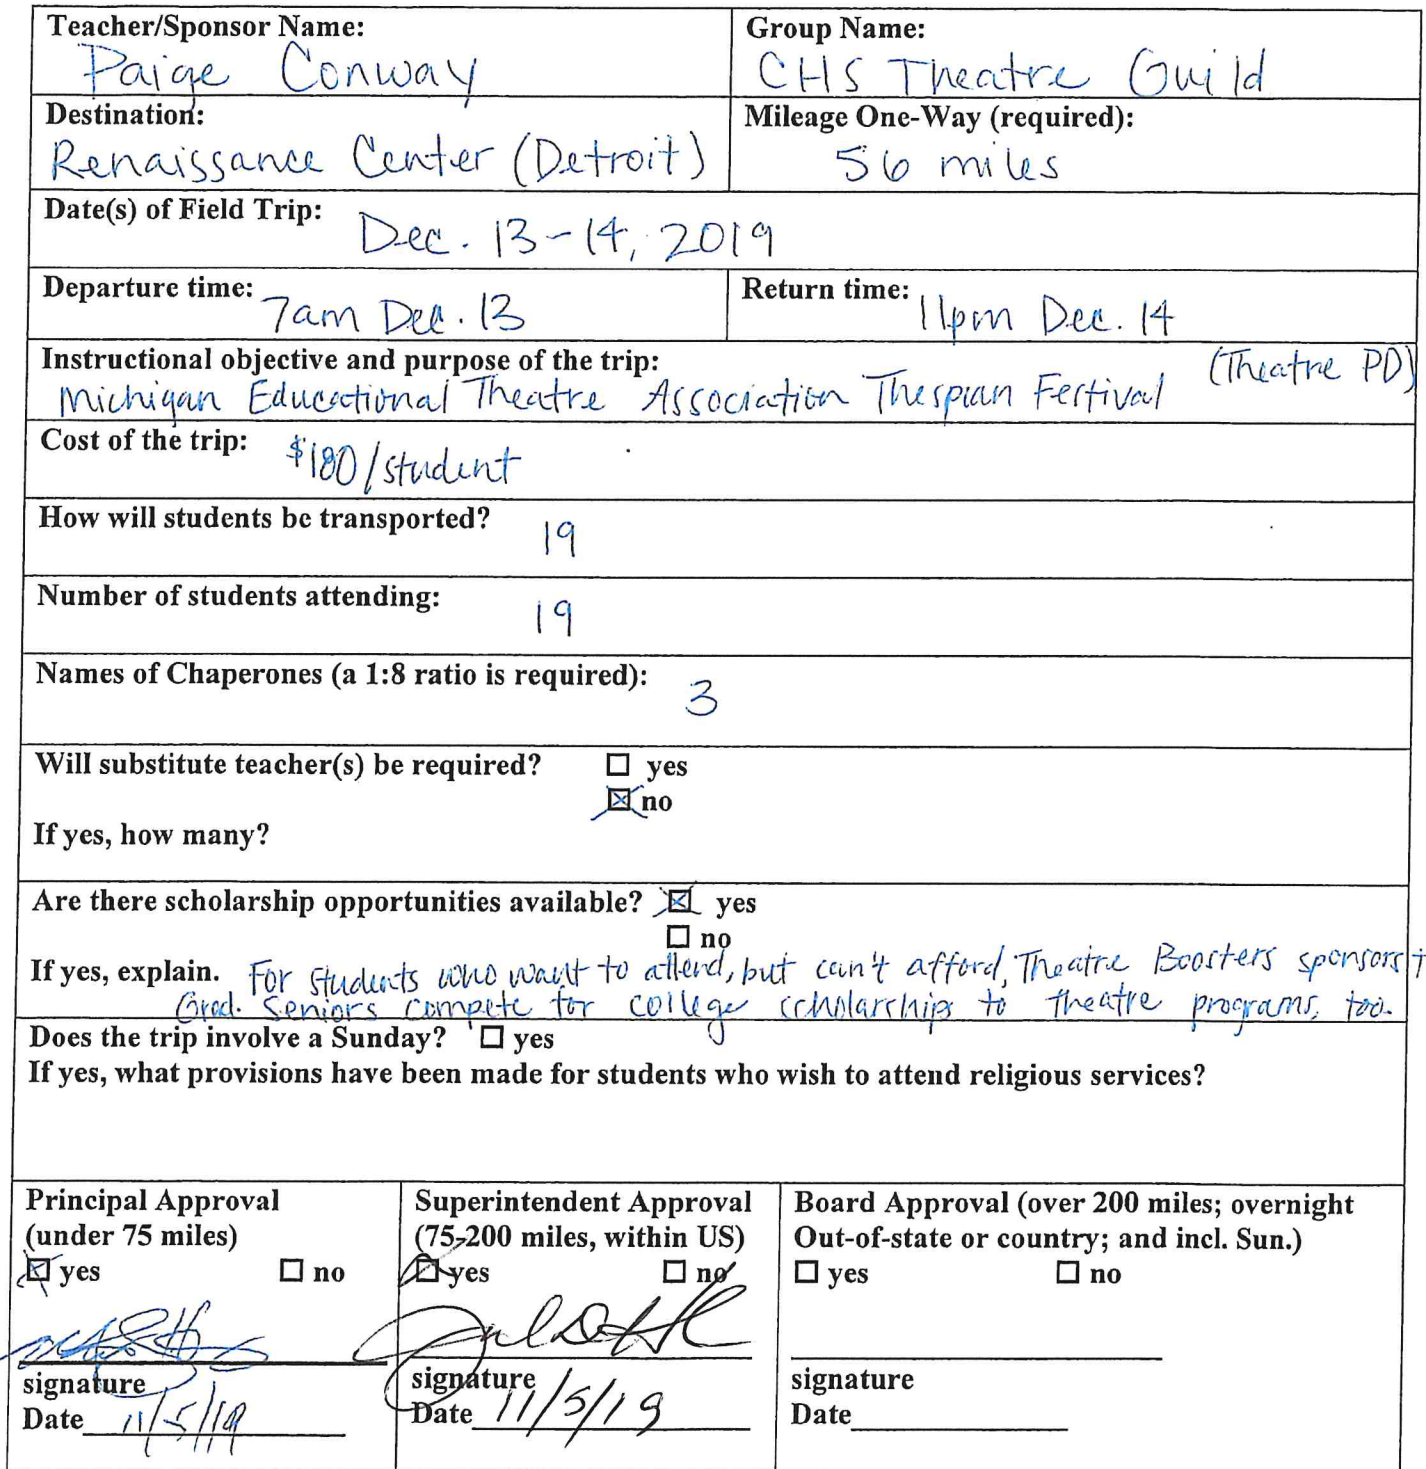 Teacher/Sponsor Name:
Paige Conway
Group Name:
CHS Theatre Guild
Destination:
Renaissance Center (Detroit)
Mileage One-Way (required):
56 miles
Date(s) of Field Trip:
Dec. 13-14, 2019
Departure time:
7am Dec. 13
Return time:
11pm Dec. 14
Instructional objective and purpose of the trip:
(Theatre PD)
Michigan Educational Theatre Association Thespian Festival
Cost of the trip:
$180/student
How will students be transported?
19
Number of students attending:
19
Names of Chaperones (a 1:8 ratio is required):
3
Will substitute teacher(s) be required? ☐ yes
☒ no
If yes, how many?
Are there scholarship opportunities available? ☒ yes
☐ no
If yes, explain. For students who want to attend, but can't afford, Theatre Boosters sponsors
Grad. seniors compete for college scholarship to theatre programs, too.
Does the trip involve a Sunday? ☐ yes
If yes, what provisions have been made for students who wish to attend religious services?
Principal Approval
(under 75 miles)
☒ yes ☐ no
signature
Date 11/5/19
Superintendent Approval
(75-200 miles, within US)
☒ yes ☐ no
signature
Date 11/5/19
Board Approval (over 200 miles; overnight
Out-of-state or country; and incl. Sun.)
☐ yes ☐ no
signature
Date